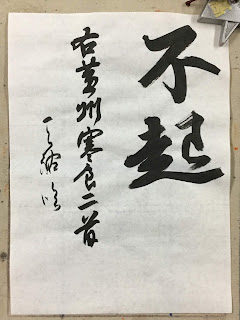 不起
右黄州寒食二首